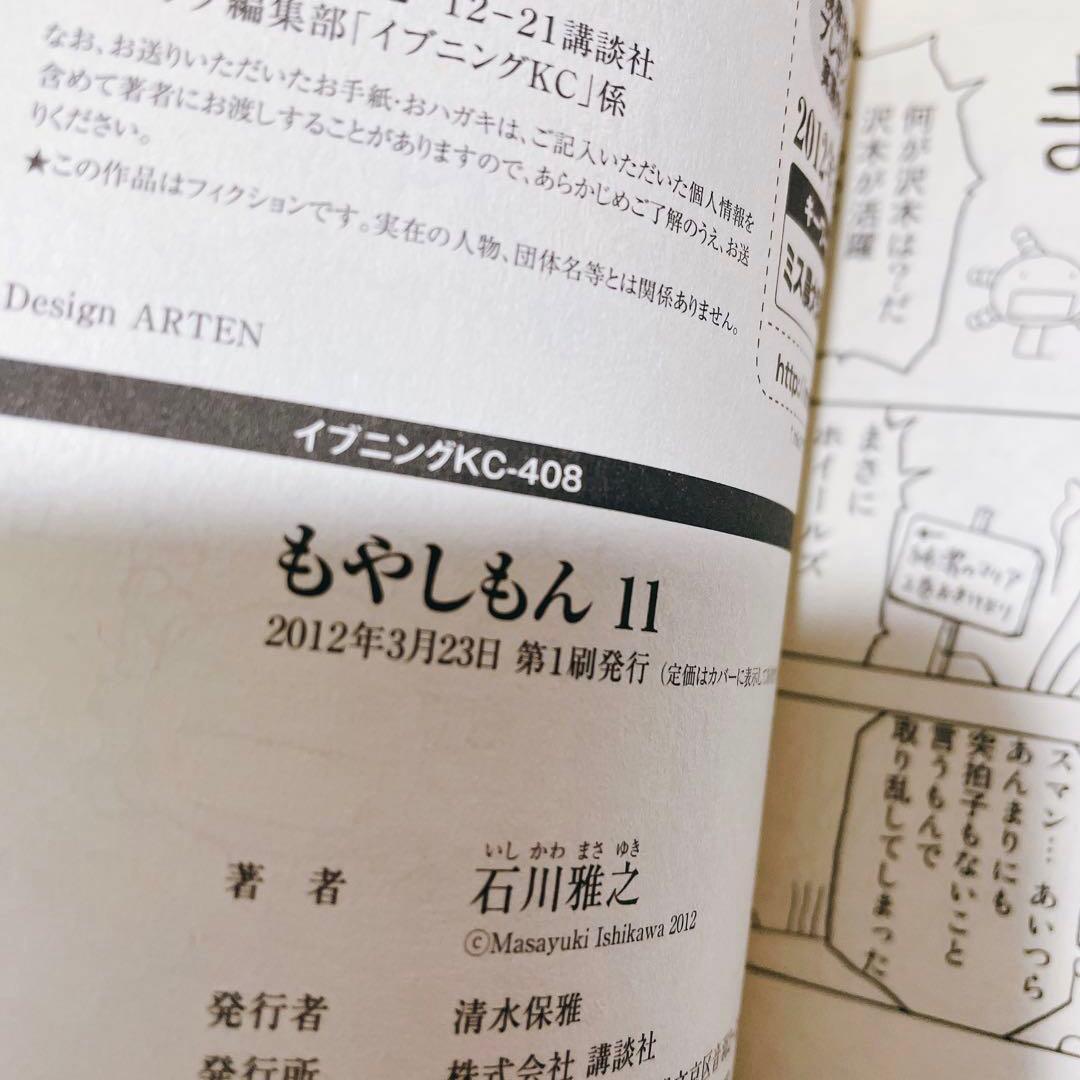 12-21講談社
編集部「イブニングKC」係
なお、お送りいただいたお手紙・おハガキは、ご記入いただいた個人情報を
含めて著者にお渡しすることがありますので、あらかじめご了解のうえ、お送
りください。
★この作品はフィクションです。実在の人物、団体名等とは関係ありません。
Design ARTEN
イブニングKC-408
もやしもん 11
2012年3月23日 第1刷発行 (定価はカバーに表示して
著 者
いし かわ まさ ゆき
石川雅之
©Masayuki Ishikawa 2012
発行者 清水保雅
発行所 株式会社 講談社
2012
ミス
http:/
何が沢木は?だ
沢木が活躍
まさに
ホイールズ
スマン… あいつら
あんまりにも
突拍子もないこと
言うもんで
取り乱してしまった